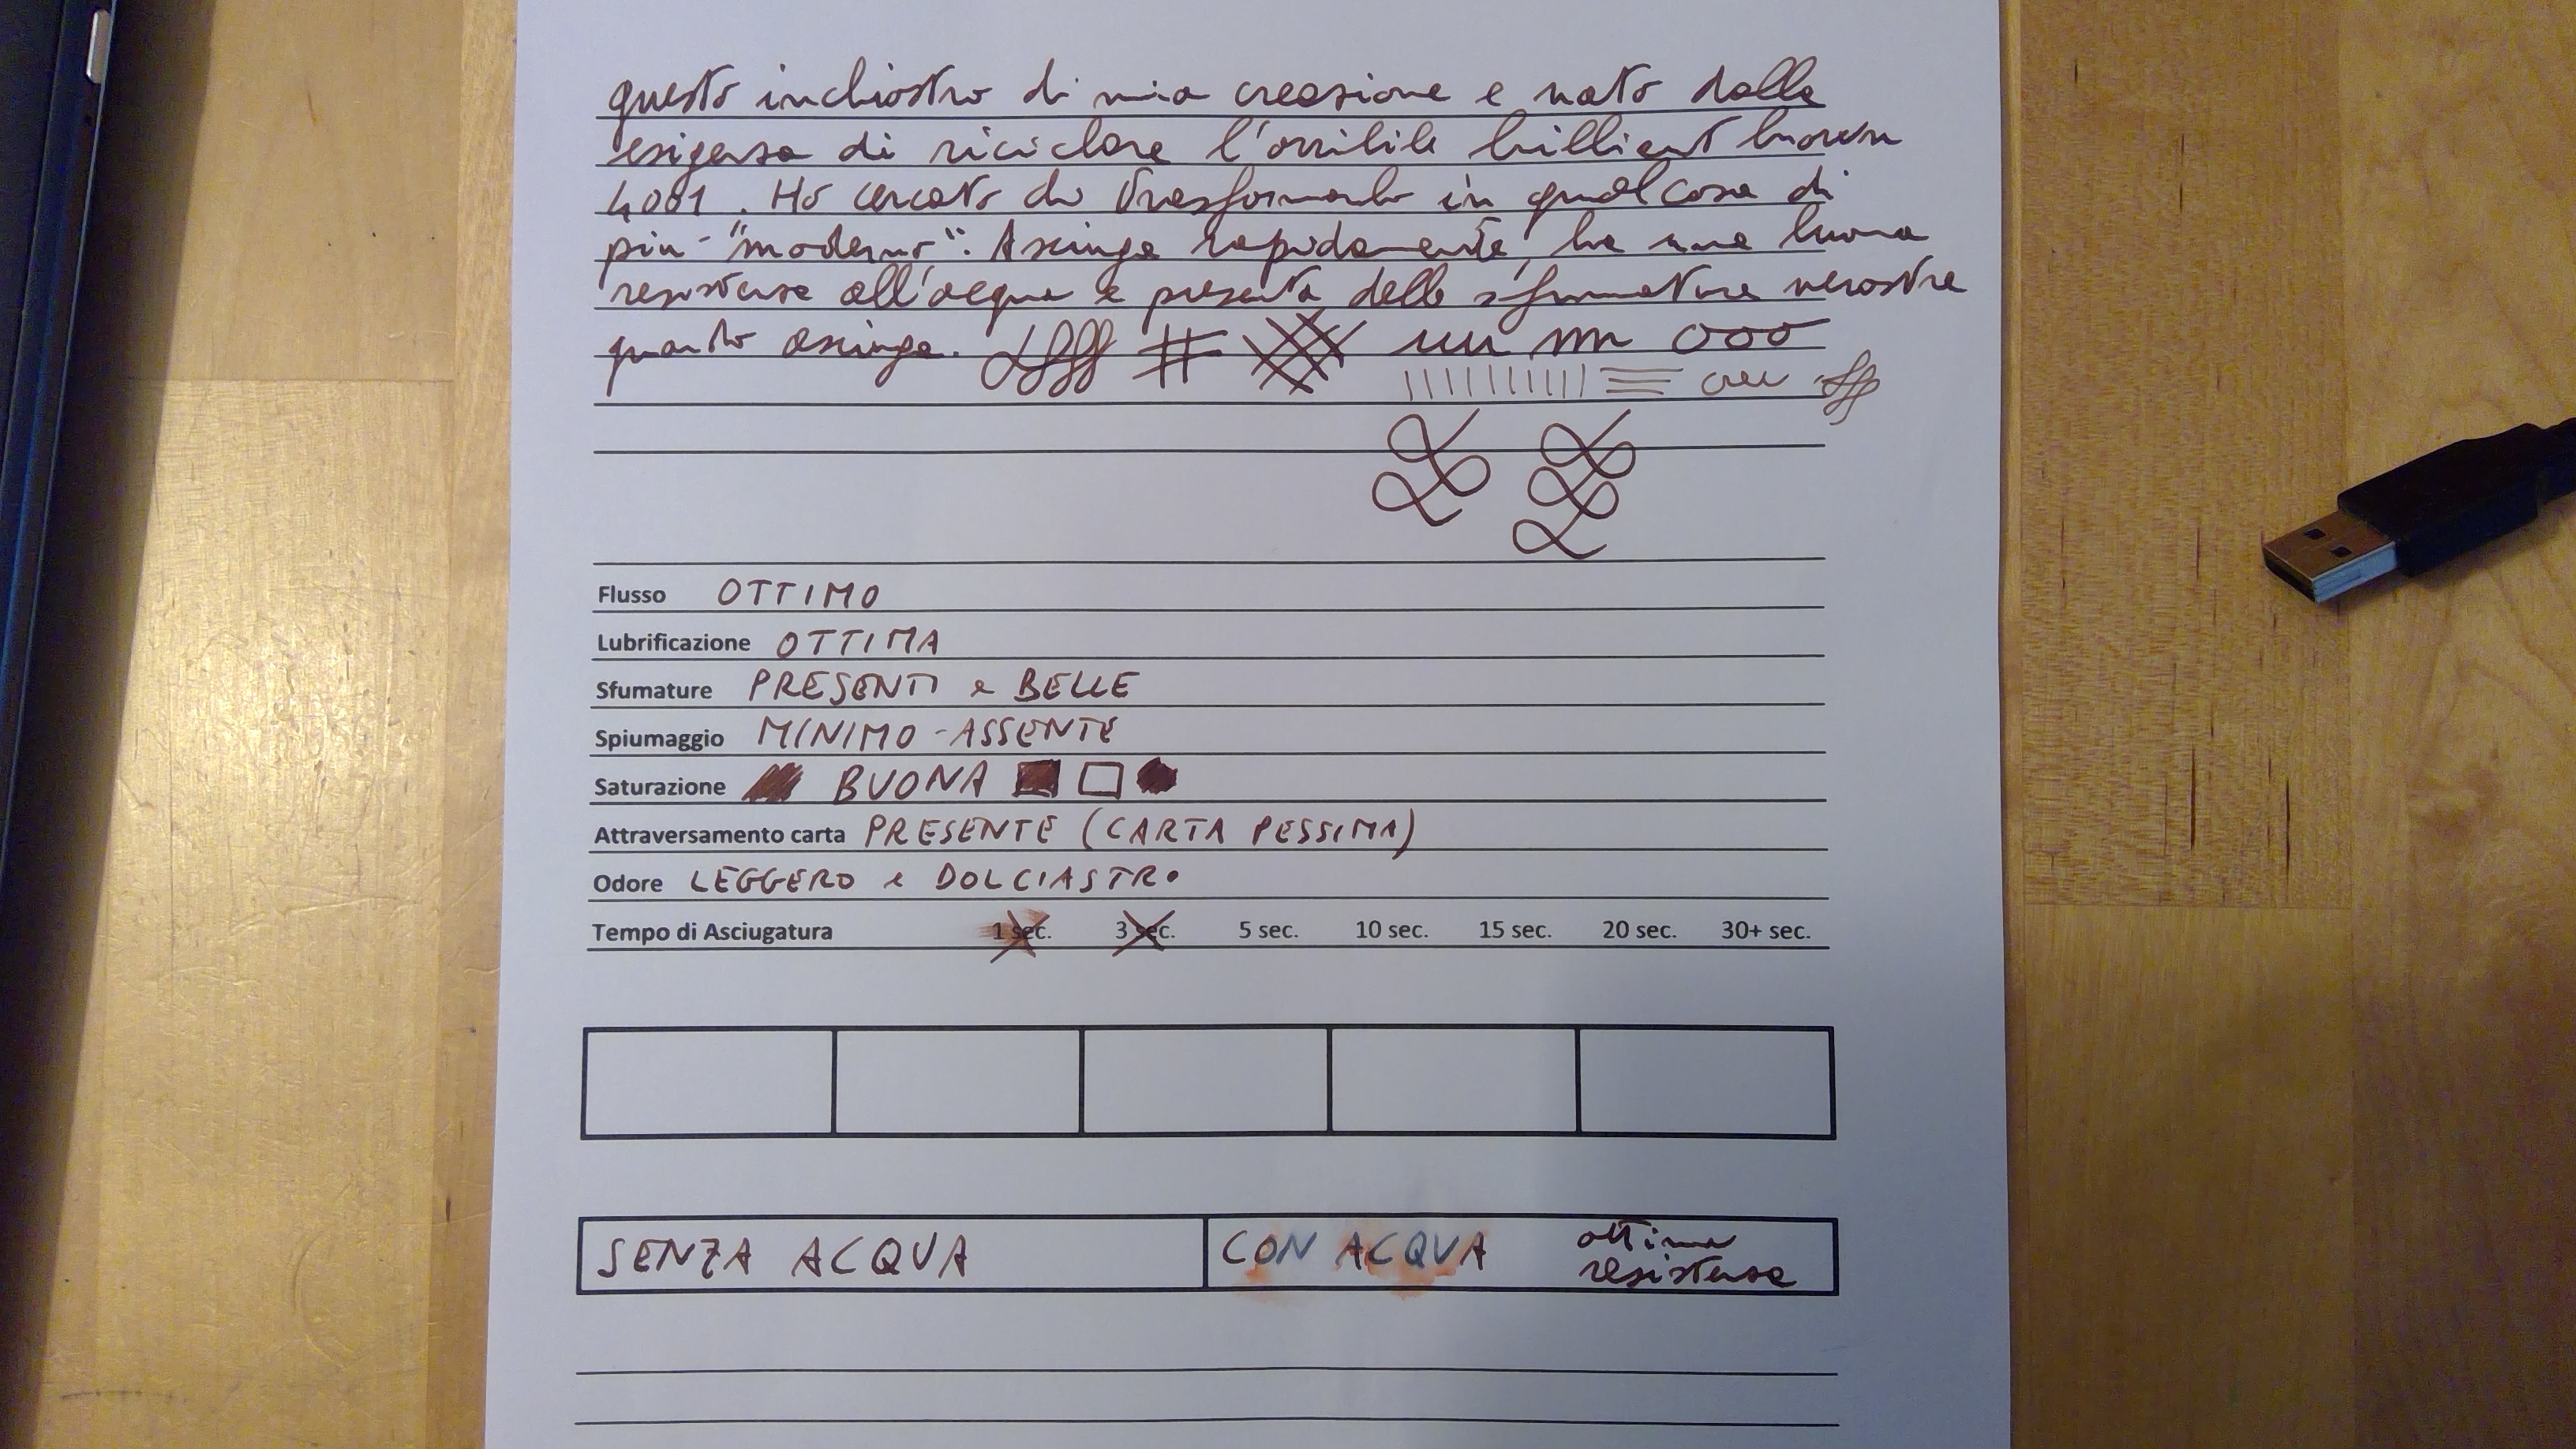 questo inchiostro di mia creazione e nato dalla
esigenza di riciclare l'orribile brilliant brown
4001. Ho cercato di trasformarlo in qualcosa di
più "moderno". Asciuga rapidamente, ha una buona
resistenza all'acqua e presenta delle sfumature nerastre
quando asciuga.
Flusso OTTIMO
Lubrificazione OTTIMA
Sfumature PRESENTI e BELLE
Spiumaggio MINIMO - ASSENTE
Saturazione BUONA
Attraversamento carta PRESENTE (CARTA PESSIMA)
Odore LEGGERO e DOLCIASTRO
Tempo di Asciugatura 1 sec. 3 sec. 5 sec. 10 sec. 15 sec. 20 sec. 30+ sec.
SENZA ACQUA CON ACQUA ottima
resistenza